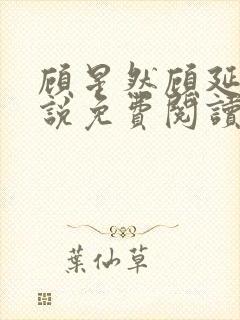 顾星然顾延
說免費閱讀
葉仙草